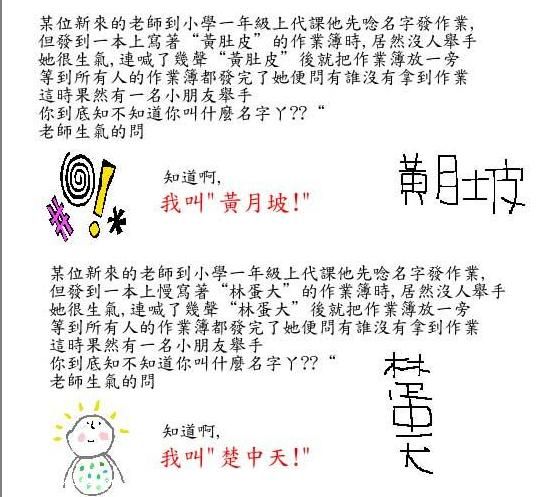 某位新來的老師到小學一年級上代課他先唸名字發作業,
但發到一本上寫著“黃肚皮”的作業簿時,居然沒人舉手
她很生氣,連喊了幾聲“黃肚皮”後就把作業簿放一旁
等到所有人的作業簿都發完了她便問有誰沒有拿到作業
這時果然有一名小朋友舉手
你到底知不知道你叫什麼名字ㄚ??“
老師生氣的問
知道啊,
我叫"黃月坡!"
黃月土皮
某位新來的老師到小學一年級上代課他先唸名字發作業,
但發到一本上慢寫著“林蛋大”的作業簿時,居然沒人舉手
她很生氣,連喊了幾聲“林蛋大”後就把作業簿放一旁
等到所有人的作業簿都發完了她便問有誰沒有拿到作業
這時果然有一名小朋友舉手
你到底知不知道你叫什麼名字ㄚ??“
老師生氣的問
知道啊,
我叫"楚中天!"
楚中天